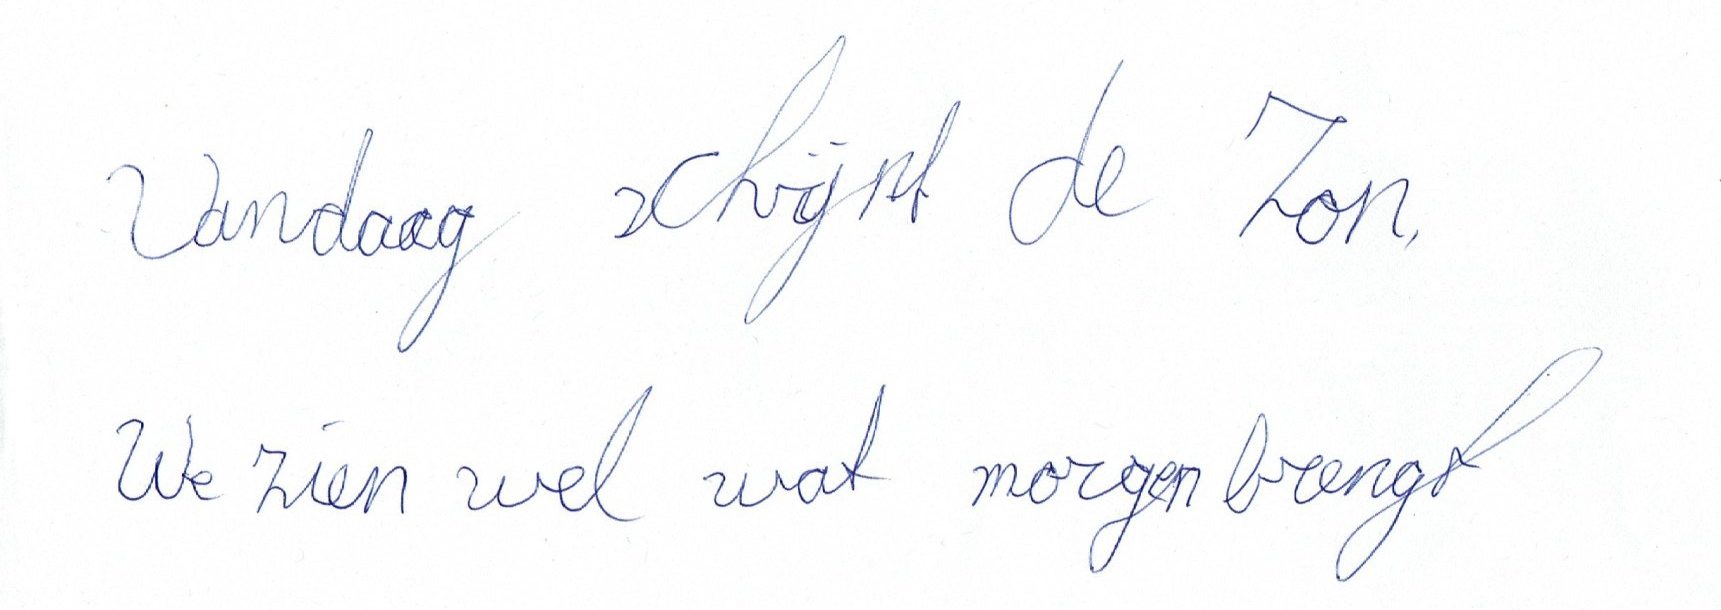 Vandaag schijnt de zon.
We zien wel wat morgen brengt